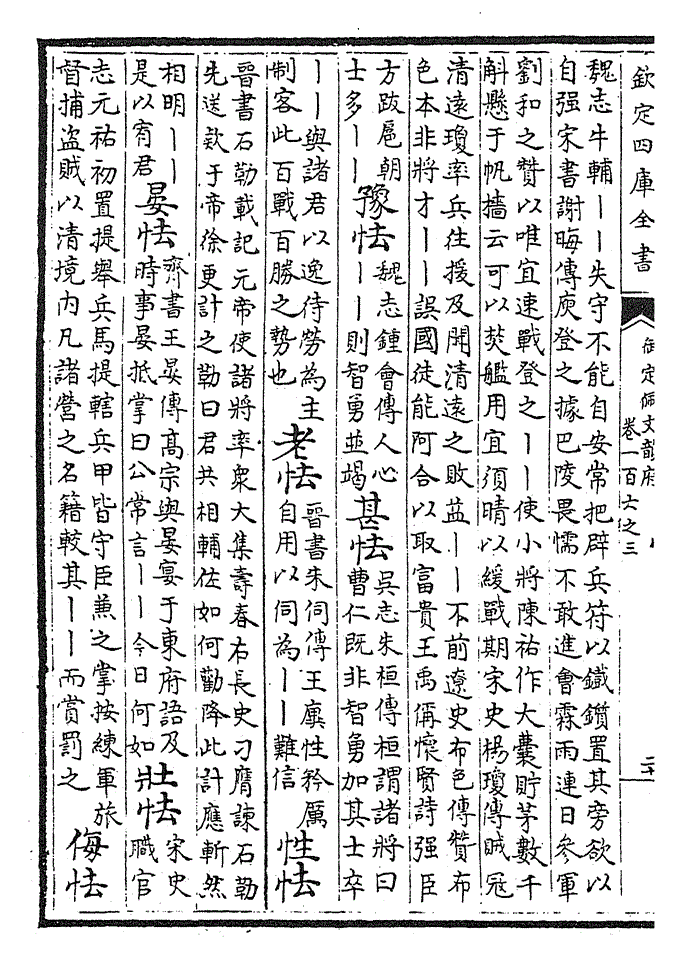 欽定四庫全書
御定佩文韻府
卷一百六之三
魏志牛輔丨丨失守不能自安常把辟兵符以鐵鑕置其旁欲以
自强宋書謝晦傳庾登之據巴陵畏懦不敢進會霖雨連日參軍
劉和之贊以唯宜速戰登之丨丨使小將陳祐作大囊貯茅數千
斛懸于帆檣云可以焚艦用宜須晴以緩戰期宋史楊瓊傳賊冦
清遠瓊率兵往援及聞清遠之敗益丨丨不前遼史布色傳贊布
色本非將才丨丨誤國徒能阿合以取富貴王禹偁懷賢詩强臣
方跋扈朝
士多丨丨
豫怯
魏志鍾會傳人心
丨丨則智勇並竭
甚怯
吳志朱桓傳桓謂諸將曰
曹仁既非智勇加其士卒
丨丨與諸君以逸待勞為主
制客此百戰百勝之勢也
老怯
晉書朱伺傳王廙性矜厲
自用以伺為丨丨難信
性怯
晉書石勒載記元帝使諸將率衆大集壽春右長史刁膺諫石勒
先送欵于帝徐更計之勒曰君共相輔佐如何勸降此計應斬然
相明丨丨
是以宥君
晏怯
齊書王晏傳髙宗與晏宴于東府語及
時事晏抵掌曰公常言丨丨今日何如
壯怯
宋史
職官
志元祐初置提舉兵馬提轄兵甲皆守臣兼之掌按練軍旅
督捕盗賊以清境内凡諸營之名籍較其丨丨而賞罰之
侮怯